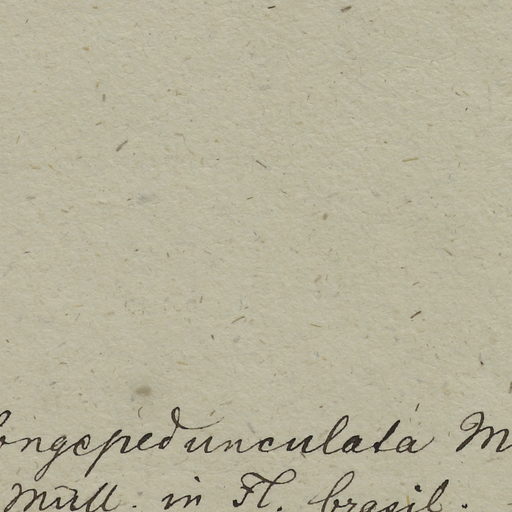 longepedunculata M
Müll. in Fl. brasil.